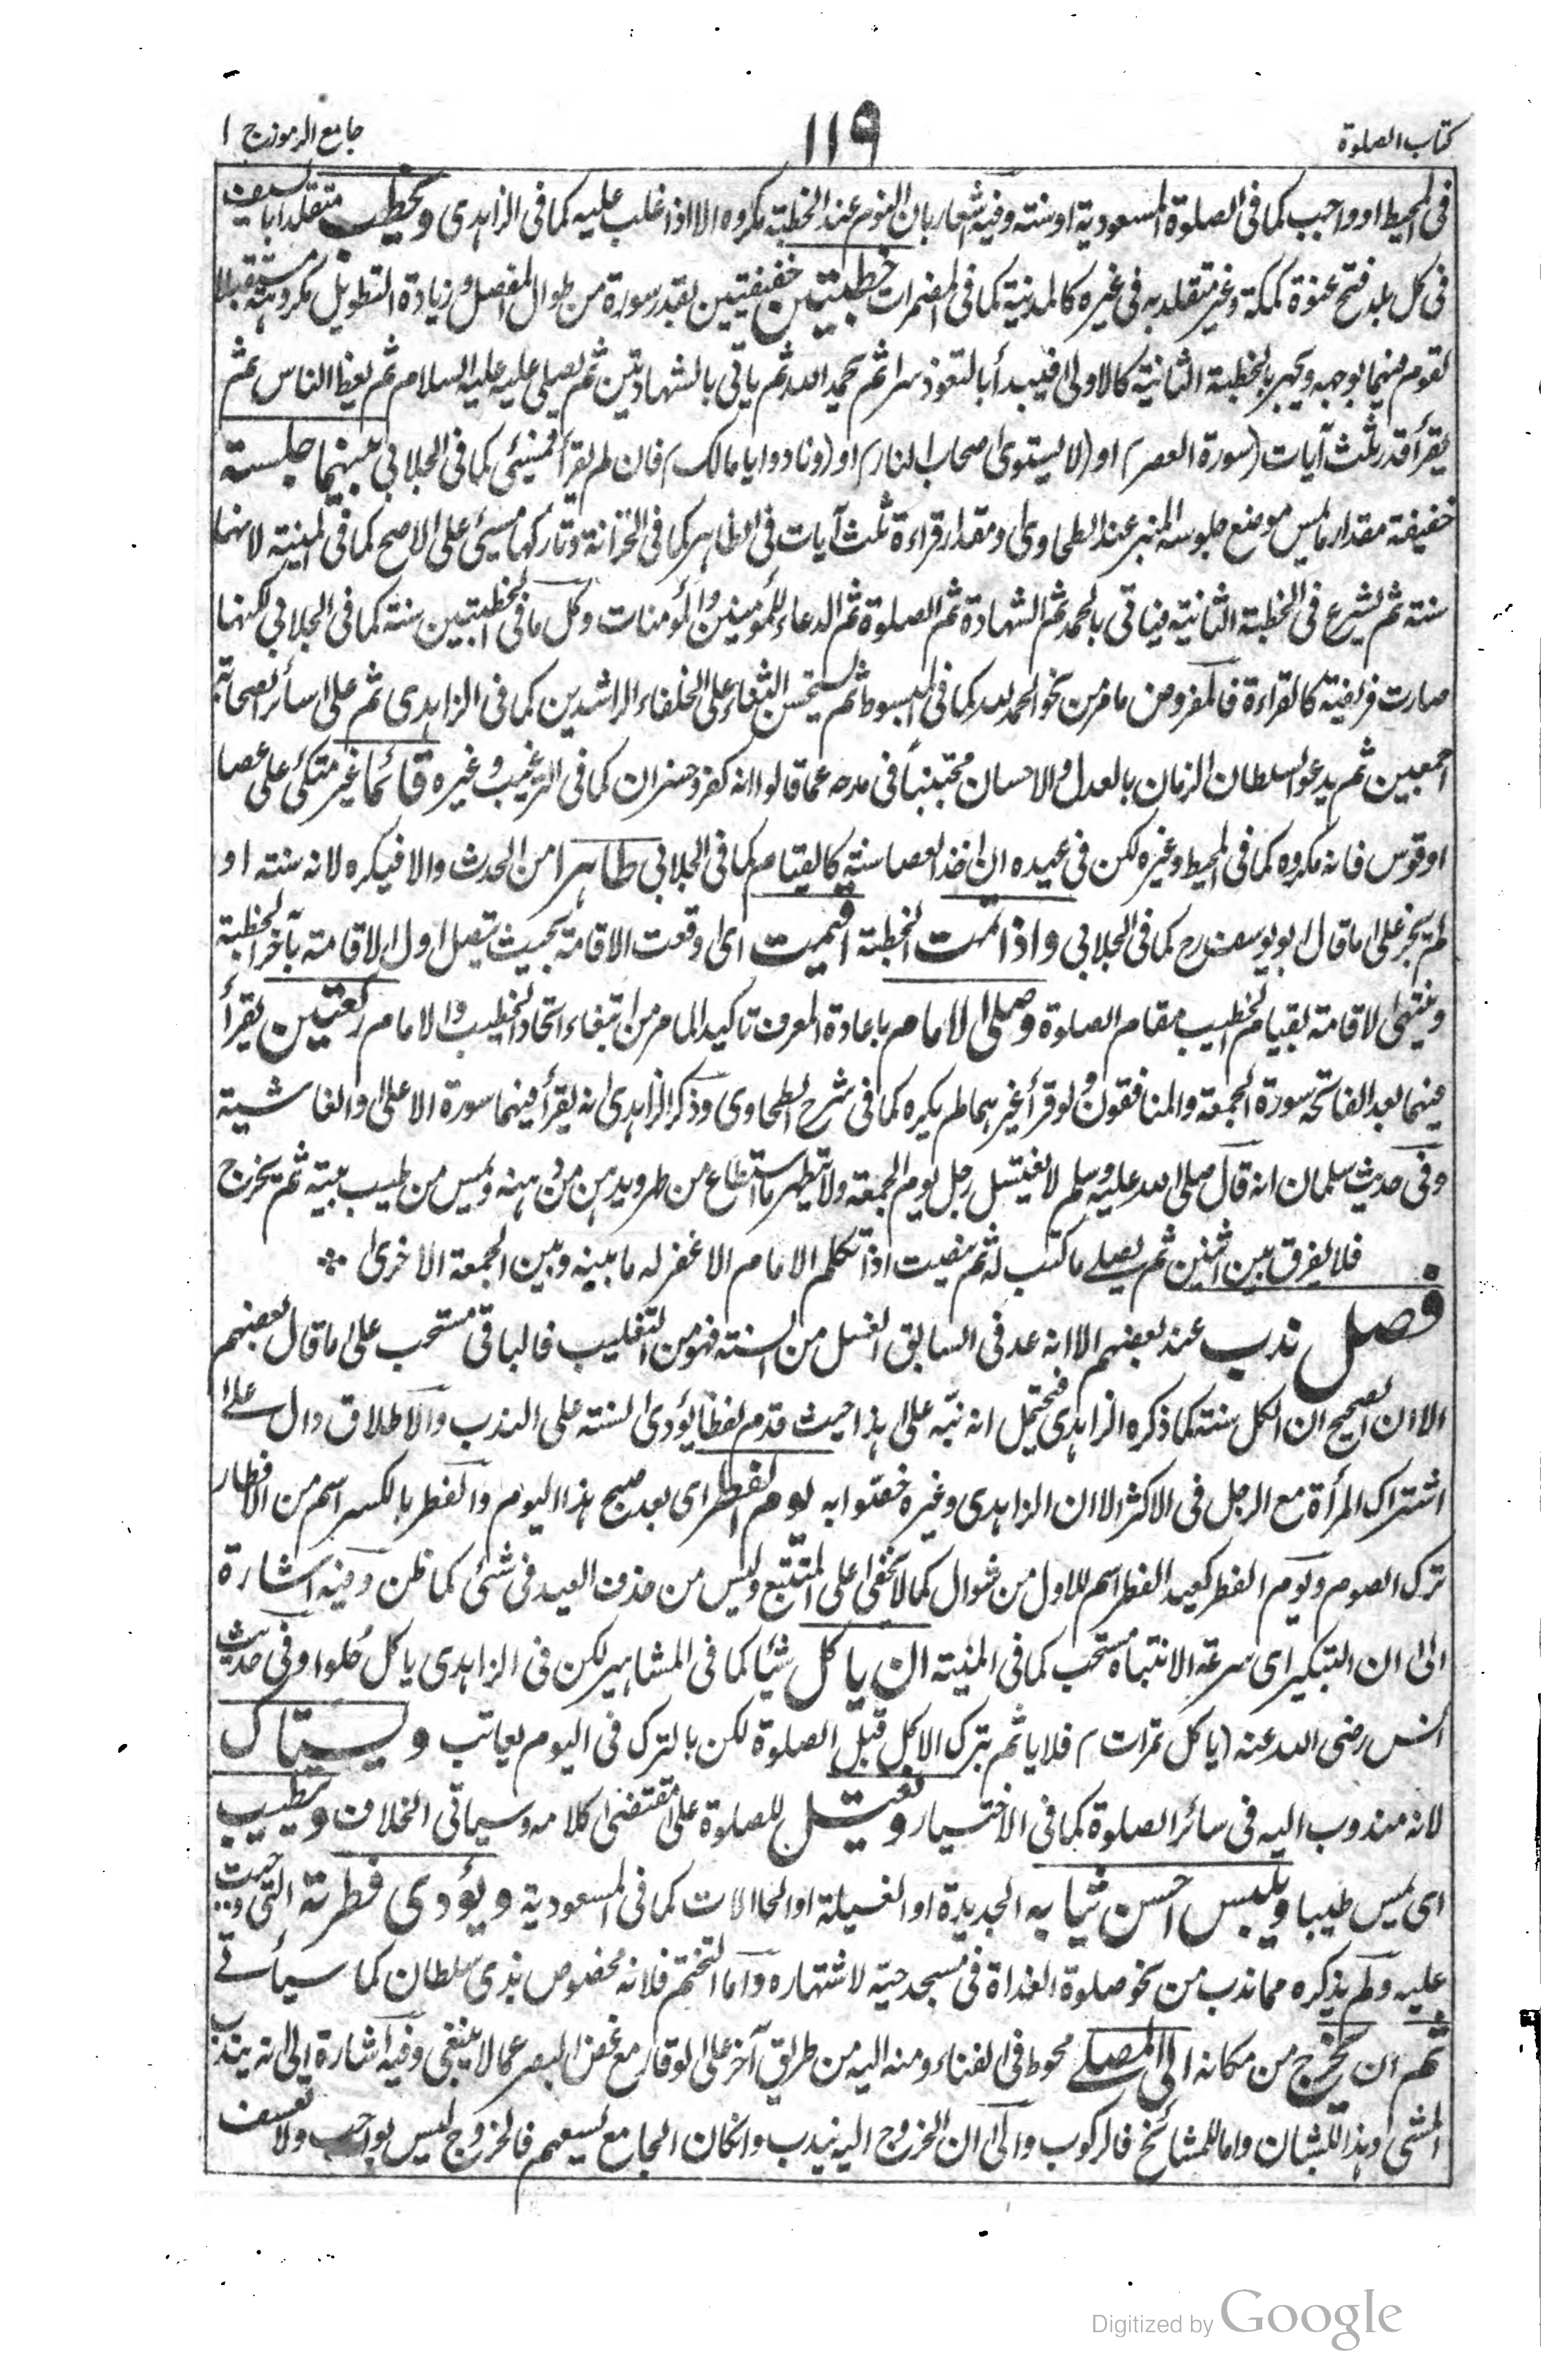 كتاب الصلوة
١١٩
جامع الرموز ج ا
فى المحيط او واجب كما فى الصلوة المسعودية او سنته وفيه اشعار بان النوم عند الخطبة مكروه الا اذا غلب عليه كما فى الزاهدى ويخطب متقلدا بالسيف
فى كل بلد فتح عنوة كمكة وغير متقلد به فى غيره كالمدينة كما فى المضمرات خطبتين خفيفتين بقدر سورة من طوال المفصل وزيادة التطويل مكروهة مستقبلا
لقوم فيهما بوجهه ويجهر بالخطبة الثانية كالاولى فيبدأ بالتعوذ سرا ثم يحمد الله ثم ياتى بالشهادتين ثم يصلى عليه عليه السلام ثم يعظ الناس ثم
يقرأ قدر ثلث آيات (سورة العصر) او (لا يستوى اصحاب النار) او (ونادوا يا مالك) فان لم يقرأ فمسيئ كما فى الجلابى بينهما جلسة
خفيفة مقدار ما يمس موضع جلوسه المنبر عند الطحاوى او مقدار قراءة ثلث آيات فى الظاهر كما فى الخزانة وتاركها مسيئ على الاصح كما فى المنية لانها
سنته ثم يشرع فى الخطبة الثانية فياتى بالحمد ثم الشهادة ثم الصلوة ثم الدعاء للمؤمنين والمؤمنات وكل ما فى الخطبتين سنة كما فى الجلابى لكنها
صارت فريضة كالقراءة فالمفروض ما مر من نحو الحمد لله كما فى المبسوط ثم يستحسن الثناء على الخلفاء الراشدين كما فى الزاهدى ثم على سائر الصحابة
اجمعين ثم يدعو لسلطان الزمان بالعدل والاحسان مجتنبا فى مدحه عما قالوا انه كفر وخسران كما فى الترغيب وغيره قائما غير متكئ على عصا
او قوس فانه مكروه كما فى المحيط وغيره لكن فى عيده ان اخذ العصا سنة كالقيام كما فى الجلابى طاهرا من الحدث والا فيكره لانه سنته او
لم يجز على ما قال ابو يوسف رح كما فى الجلابى واذا تمت الخطبة اقيمت اى وقعت الاقامة بحيث يتصل اول الاقامة بآخر الخطبة
وينتهى الاقامة بقيام الخطيب مقام الصلوة وصلى الامام باعادة المعرف تاكيد المامر من ابتغاء اتحاد الخطيب والامام ركعتين يقرأ
فيهما بعد الفاتحة سورة الجمعة والمنافقون ولو قرأ غيرهما لم يكره كما فى شرح الطحاوى وذكر الزاهدى انه يقرأ فيهما سورة الاعلى والغاشية
وفى حديث سلمان انه قال صلى الله عليه وسلم لا يغتسل رجل يوم الجمعة ولا تيطهر ما استطاع من طهر ويدهن من دهنه ويمس من طيب بيته ثم يخرج
فلا يفرق بين اثنين ثم يصلے ما كتب له ثم ينصت اذا تكلم الامام الا غفر له ما بينه وبين الجمعة الاخرى
فصل ندب عند بعضهم الا انه عد فى السابق الغسل من السنة فهو من التغليب فالباقى مستحب على ما قال بعضهم
الا ان الصحيح ان الكل سنته كما ذكره الزاهدى فيحتمل انه نبه على هذا حيث قدم لفظا يؤدى السنته على الندب والاطلاق دال على
اشتراك المرأة مع الرجل فى الاكثر الا ان الزاهدى وغيره خصوا به يوم الفطر اى بعد صبح هذا اليوم والفطر بالكسر اسم من الافطار
ترك الصوم ويوم الفطر كعيد الفطر اسم للاول من شوال كما لا يخفى على المتتبع وليس من حذف العيد فى شئ كما ظن وفيه اشارة
الى ان التبكير اى سرعة الانتباه مستحب كما فى المنية ان ياكل شيئا كما فى المشاهير لكن فى الزاهدى ياكل حلوا وفى حديث
انس رضى الله عنه (ياكل تمرات) فلا ياثم بترك الاكل قبل الصلوة لكن بالترك فى اليوم يعاتب ويستاك
لانه مندوب اليه فى سائر الصلوة كما فى الاختيار ويغتسل للصلوة على مقتضى كلامه وسياتى الخلاف ويتطيب
اى يمس طيبا ويلبس احسن ثيابه الجديدة او الغسيلة او الحالات كما فى المسعودية ويؤدى فطرته التى وجبت
عليه ولم يذكره مما ندب من نحو صلوة الغداة فى مسجد حيه لاشتهاره واما التختم فلانه مخصوص بذى سلطان كما سياتے
ثم ان يخرج من مكانه الى المصلے محوط فى الفناء ومنه اليه من طريق آخر على الوقار مع غض البصر عما لا ينبغى وفيه اشارة الى انه يندب
المشى وهذا للشبان واما للمشائخ فالركوب والى ان الخروج اليه يندب وانكان الجامع يسعهم فالخروج ليس بواجب ولا تعسف
Digitized by Google